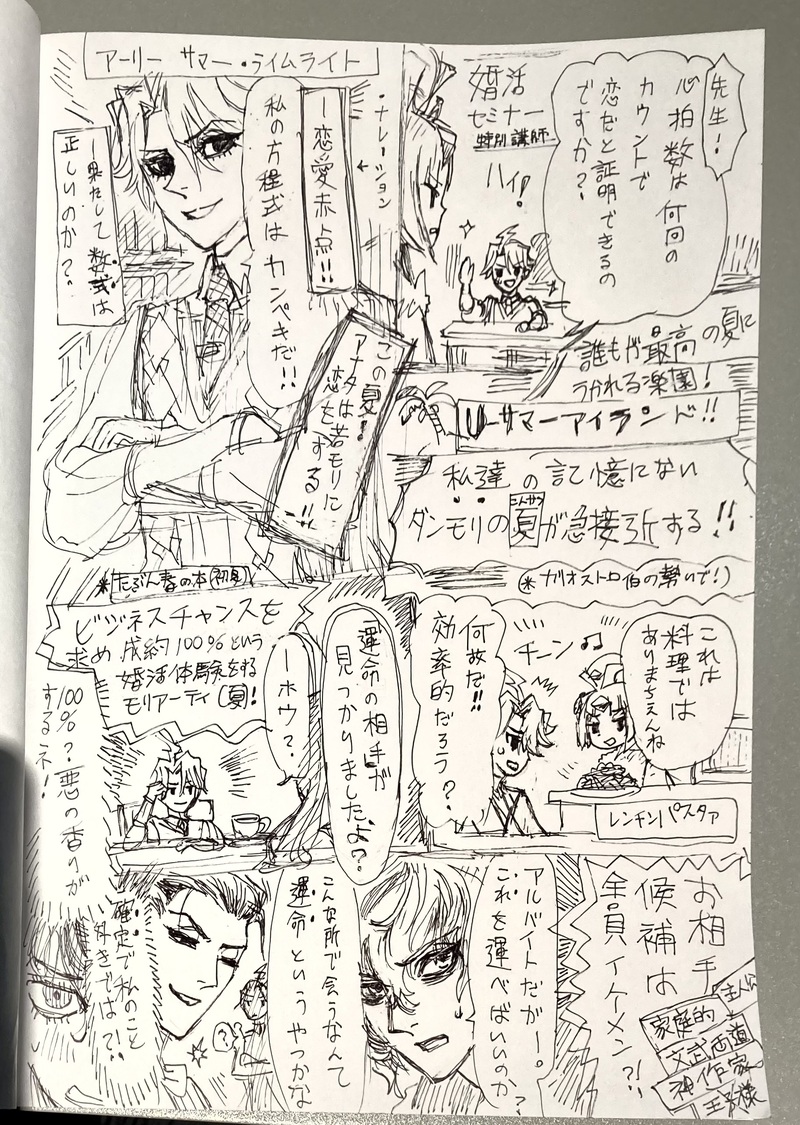 先生！
心拍数は何回の
カウントで
恋だと証明できるの
ですか？
婚活
セミナー
特別講師
ハイ！
アーリー サマー・ライムライト
・ナレーション
―恋愛赤点!!
私の方程式はカンペキだ!!
―果たして数式は
正しいのか？
誰もが最高の夏に
うかれる楽園！
U―サマーアイランド!!
この夏！
アナタは若モリに
恋をする!!
私達の記憶にない
ダンモリの夏が急接近する!!
＊たぶん春の本(初見)
(＊カリオストロ伯の勢いで！)
これは
料理では
ありまちぇんね
チーン♫
何故だ!!
効率的だろう？
レンチンパスタァ
運命の相手が
見つかりましたよ？
―ホウ？
ビジネスチャンスを
求め 成約100％という
婚活体験をする
モリアーティ(夏！
100％？悪の香りが
するネ！
お相手
候補は
全員イケメン?!
主人公
家庭的
文武両道
神作家
王子様
アルバイトだがー。
これを運べばいいのか？
こんな所で会うなんて
運命というやつかな
??
確定で私のこと
好きでは?!